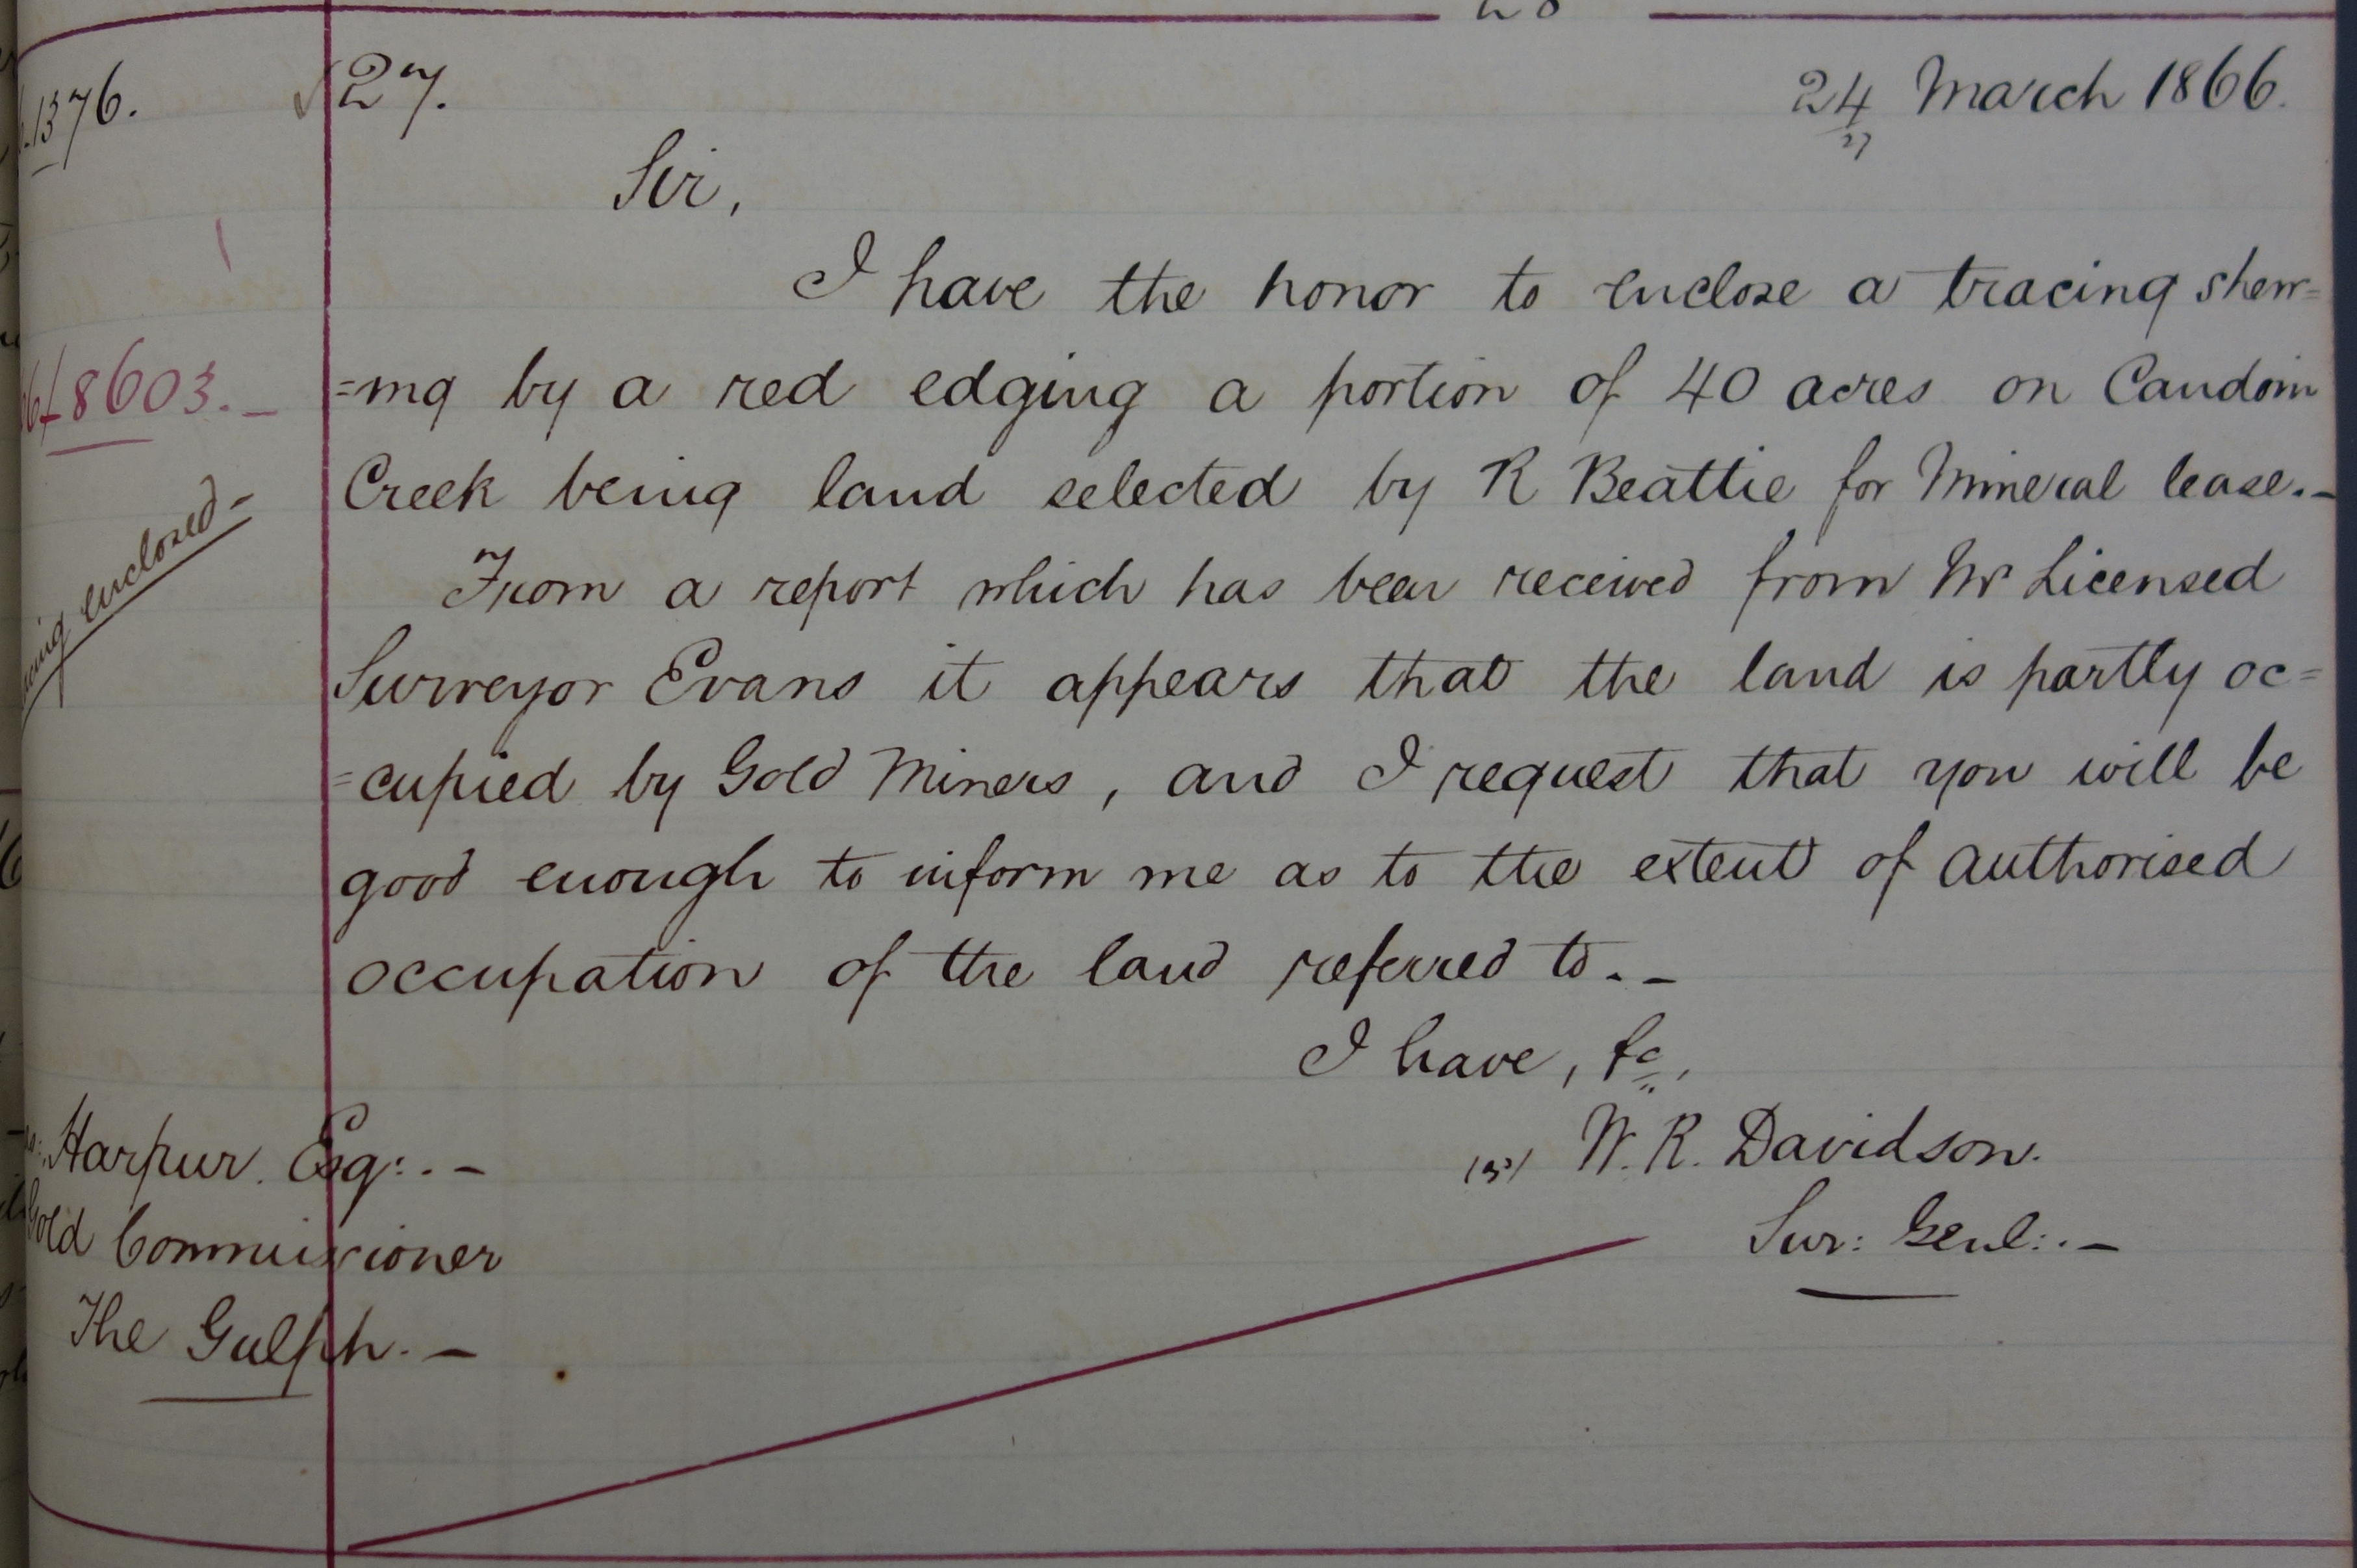 28
.1376.
27.
24 March 1866.
27
Sir,
I have the honor to enclose a tracing shew=
8603. _
=ing by a red edging a portion of 40 acres on Candoin
Creek being land selected by R Beattie for Mineral lease._
enclosed-
From a report which has been received from Mr Licensed
Surveyor Evans it appears that the land is partly oc=
=cupied by Gold Miners, and I request that you will be
good enough to inform me as to the extent of authorised
occupation of the land referred to._
I have, &c,
Harpur. Esq:._
(sd) W. R. Davidson.
Gold Commissioner
Sur: Genl:._
The Gulph._